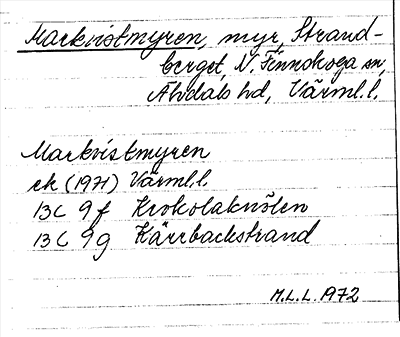 Markvistmyren, myr, Strand-
berget, N. Finnskoga sn,
Älvdals hd, Värml. l.
Markvistmyren
ek (1971) Värml. l.
13C 9f Krokolaknölen
13C 9g Kärrbackstrand
M.L.L. 1972